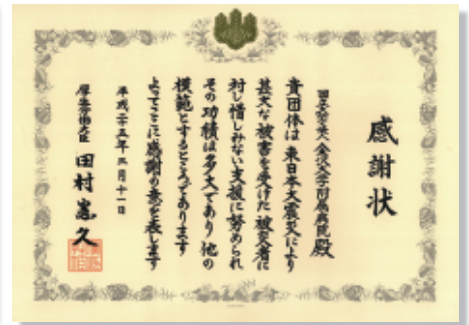 感謝状
国立大学法人金沢大学附属病院殿
貴団体は東日本大震災により
甚大な被害を受けた被災者に
対し惜しみない支援に努められ
その功績は多大であり他の
模範とするところであります
よってここに感謝の意を表します
平成二十五年三月十一日
厚生労働大臣 田村憲久